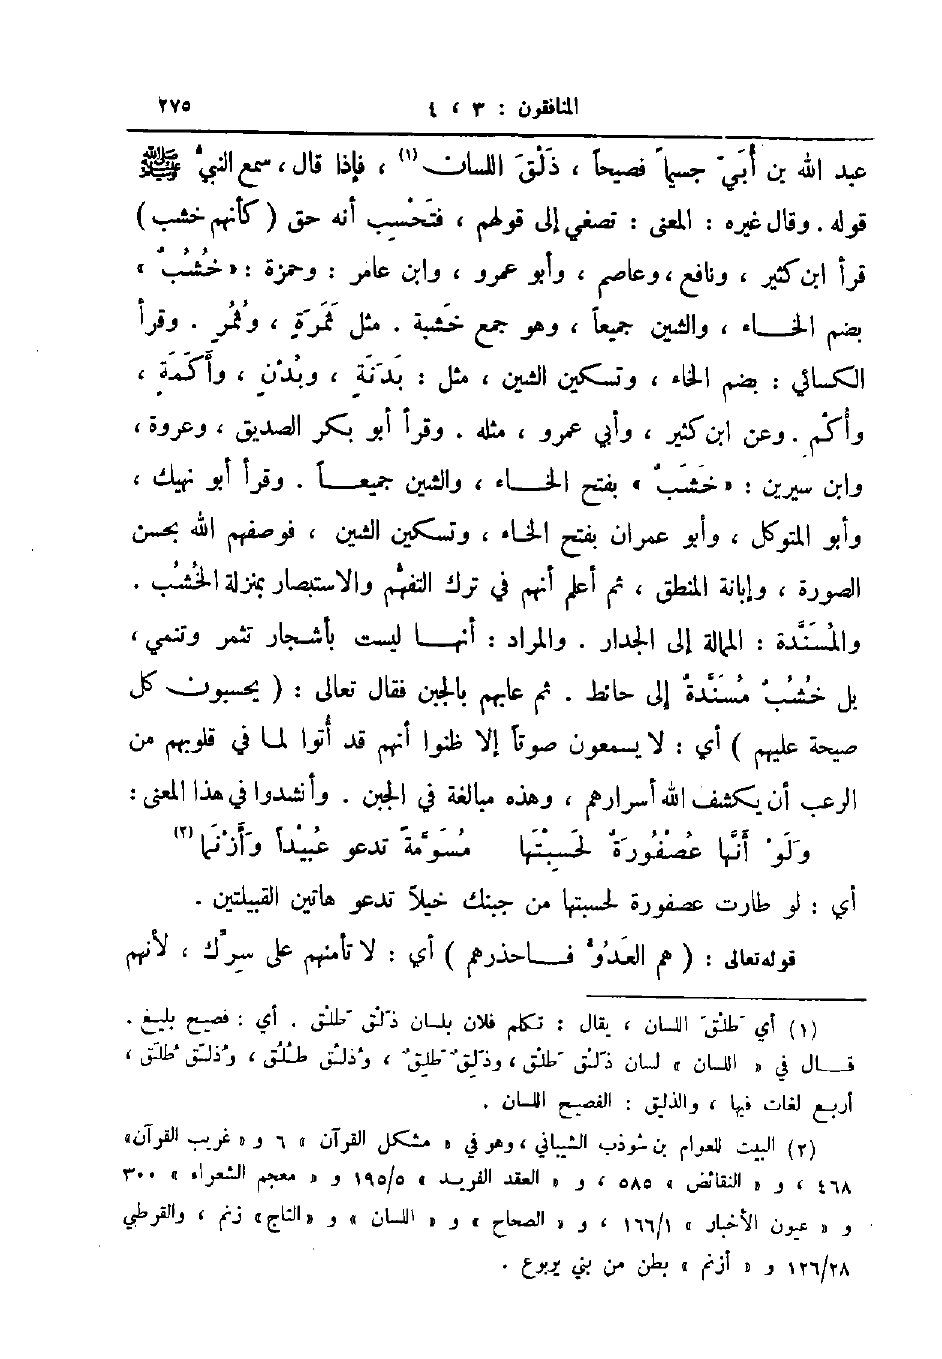 المنافقون : ٣ ، ٤
٢٧٥
عبد الله بن أُبَيّ جسيماً فصيحاً ، ذَلْقَ اللسان (١) ، فإذا قال ، سمع النبيُّ ﷺ
قوله . وقال غيره : المعنى : تصغي إلى قولهم ، فتَحْسِب أنه حق ( كأنهم خشب )
قرأ ابن كثير ، ونافع ، وعاصم ، وأبو عمرو ، وابن عامر : وحمزة : « خُشُبٌ »
بضم الخـاء ، والشين جميعاً ، وهو جمع خَشَبة . مثل ثَمَرَةٍ ، وثُمُرٍ . وقرأ
الكسائي : بضم الخاء ، وتسكين الشين ، مثل : بَدَنَةٍ ، وبُدْنٍ ، وأَكَمَةٍ ،
وأُكْم . وعن ابن كثير ، وأبي عمرو ، مثله . وقرأ أبو بكر الصديق ، وعروة ،
وابن سيرين : « خَشَبٌ » بفتح الخـاء ، والشين جميعـاً . وقرأ أبو نهيك ،
وأبو المتوكل ، وأبو عمران بفتح الخاء ، وتسكين الشين ، فوصفهم الله بحسن
الصورة ، وإبانة المنطق ، ثم أعلم أنهم في ترك التفهُّم والاستبصار بمنزلة الخُشُب .
والمُسَنَّدة : الممالة إلى الجدار . والمراد : أنهـا ليست بأشجار تثمر وتنمي ،
بل خُشُبٌ مُسَنَّدةٌ إلى حائط . ثم عابهم بالجبن فقال تعالى : ( يحسبون كل
صيحة عليهم ) أي : لا يسمعون صوتاً إلا ظنوا أنهم قد أُتوا لما في قلوبهم من
الرعب أن يكشف الله أسرارهم ، وهذه مبالغة في الجبن . وأنشدوا في هذا المعنى :
وَلَوْ أَنَّها عُصْفُورَةٌ لَحَسِبْتَها مُسَوَّمةً تدعو عُبَيْداً وَأَزْنَما (٢)
أي : لو طارت عصفورة لحسبتها من جبنك خيلاً تدعو هاتين القبيلتين .
قوله تعالى : ( هم العَدُوُّ فـاحذرهم ) أي : لا تأمنهم على سِرِّك ، لأنهم
(١) أي طَلْقَ اللسان ، يقال : تكلم فلان بلسان ذَلْق طَلْق . أي : فصيح بليغ .
قـال في « اللسان » لسان ذَلْق طَلْق ، وذَلِيقٌ طَلِيقٌ ، وذُلُق طُلُق ، وذُلَق طُلَق ،
أربع لغات فيها ، والذليق : الفصيح اللسان .
(٢) البيت للعوام بن شوذب الشيباني ، وهو في « مشكل القرآن » ٦ و « غريب القرآن»
٤٦٨ ، و « النقائض » ٥٨٥ ، و « العقد الفريد » ١٩٥/٥ و « معجم الشعراء » ٣٠٠
و « عيون الأخبار » ١٦٦/١ ، و « الصحاح » و « اللسان » و «التاج» زنم ، والقرطبي
١٢٦/٢٨ و « أزنم » بطن من بني يربوع .